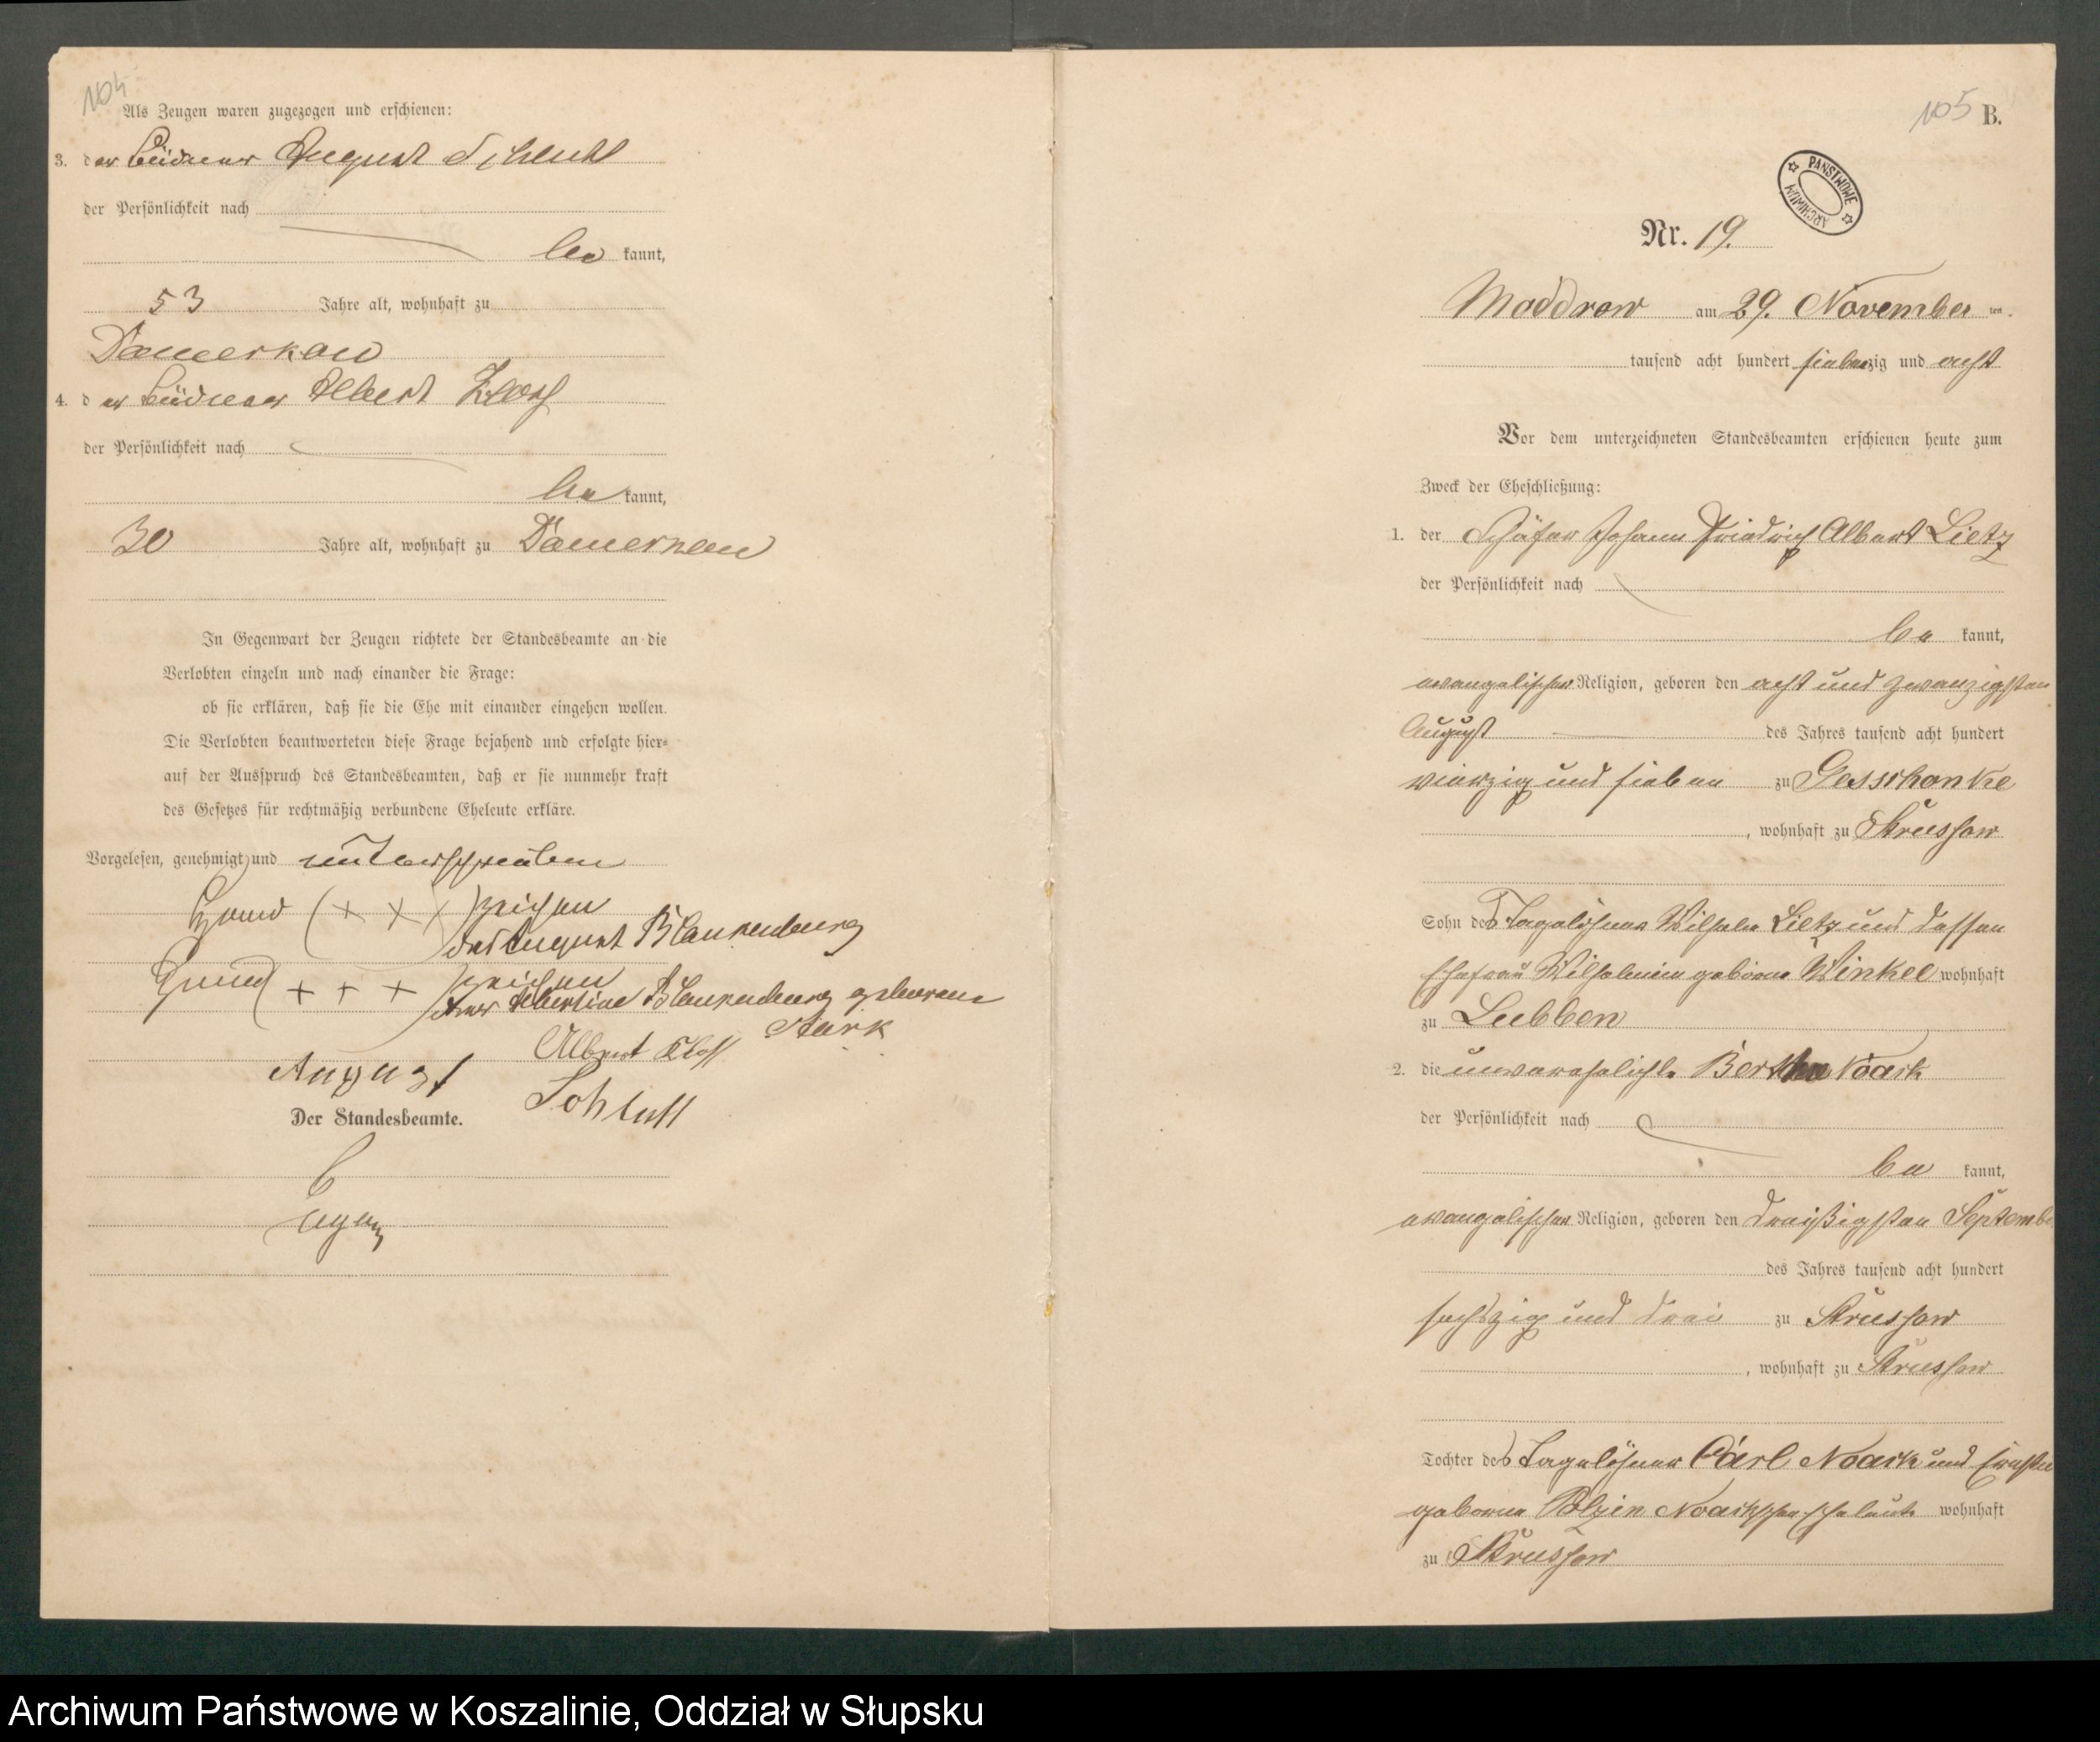 104
Als Zeugen waren zugezogen und erschienen:
3. der Büdner August Schlutt
der Persönlichkeit nach
be kannt,
53 Jahre alt, wohnhaft zu
Damerkow
4. der Büdner Albert Kloß
der Persönlichkeit nach
be kannt,
30 Jahre alt, wohnhaft zu Damerkow
In Gegenwart der Zeugen richtete der Standesbeamte an die
Verlobten einzeln und nach einander die Frage:
ob sie erklären, daß sie die Ehe mit einander eingehen wollen.
Die Verlobten beantworteten diese Frage bejahend und erfolgte hier-
auf der Ausspruch des Standesbeamten, daß er sie nunmehr kraft
des Gesetzes für rechtmäßig verbundene Eheleute erkläre.
Vorgelesen, genehmigt und unterschrieben
Hand (+ + +) zeichen
des August Blankenburg
Hand (+ + +) zeichen
der Albertine Blankenburg geborene
Stark
Albert Kloß
August Schlutt
Der Standesbeamte.
105 B.
PAŃSTWOWE ARCHIWUM
Nr. 19.
Moddrow am 29. November ten.
tausend acht hundert siebenzig und acht
Vor dem unterzeichneten Standesbeamten erschienen heute zum
Zweck der Eheschließung:
1. der Schäfer Johann Friedrich Albert Lietz
der Persönlichkeit nach
be kannt,
evangelischer Religion, geboren den acht und zwanzigsten
August des Jahres tausend acht hundert
vierzig und sieben zu Gesschonke
, wohnhaft zu Strussow
Sohn des Tagelöhner Wilhelm Lietz und dessen
Ehefrau Wilhelmine geborne Winkel wohnhaft
zu Lubben
2. die unverehelichte Bertha Noack
der Persönlichkeit nach
be kannt,
evangelischer Religion, geboren den dreißigsten Septembe
des Jahres tausend acht hundert
sechszig und drei zu Strussow
, wohnhaft zu Strussow
Tochter des Tagelöhner Carl Noack und
geborne Polzin Noackschen Eheleute wohnhaft
zu Strussow
Archiwum Państwowe w Koszalinie, Oddział w Słupsku